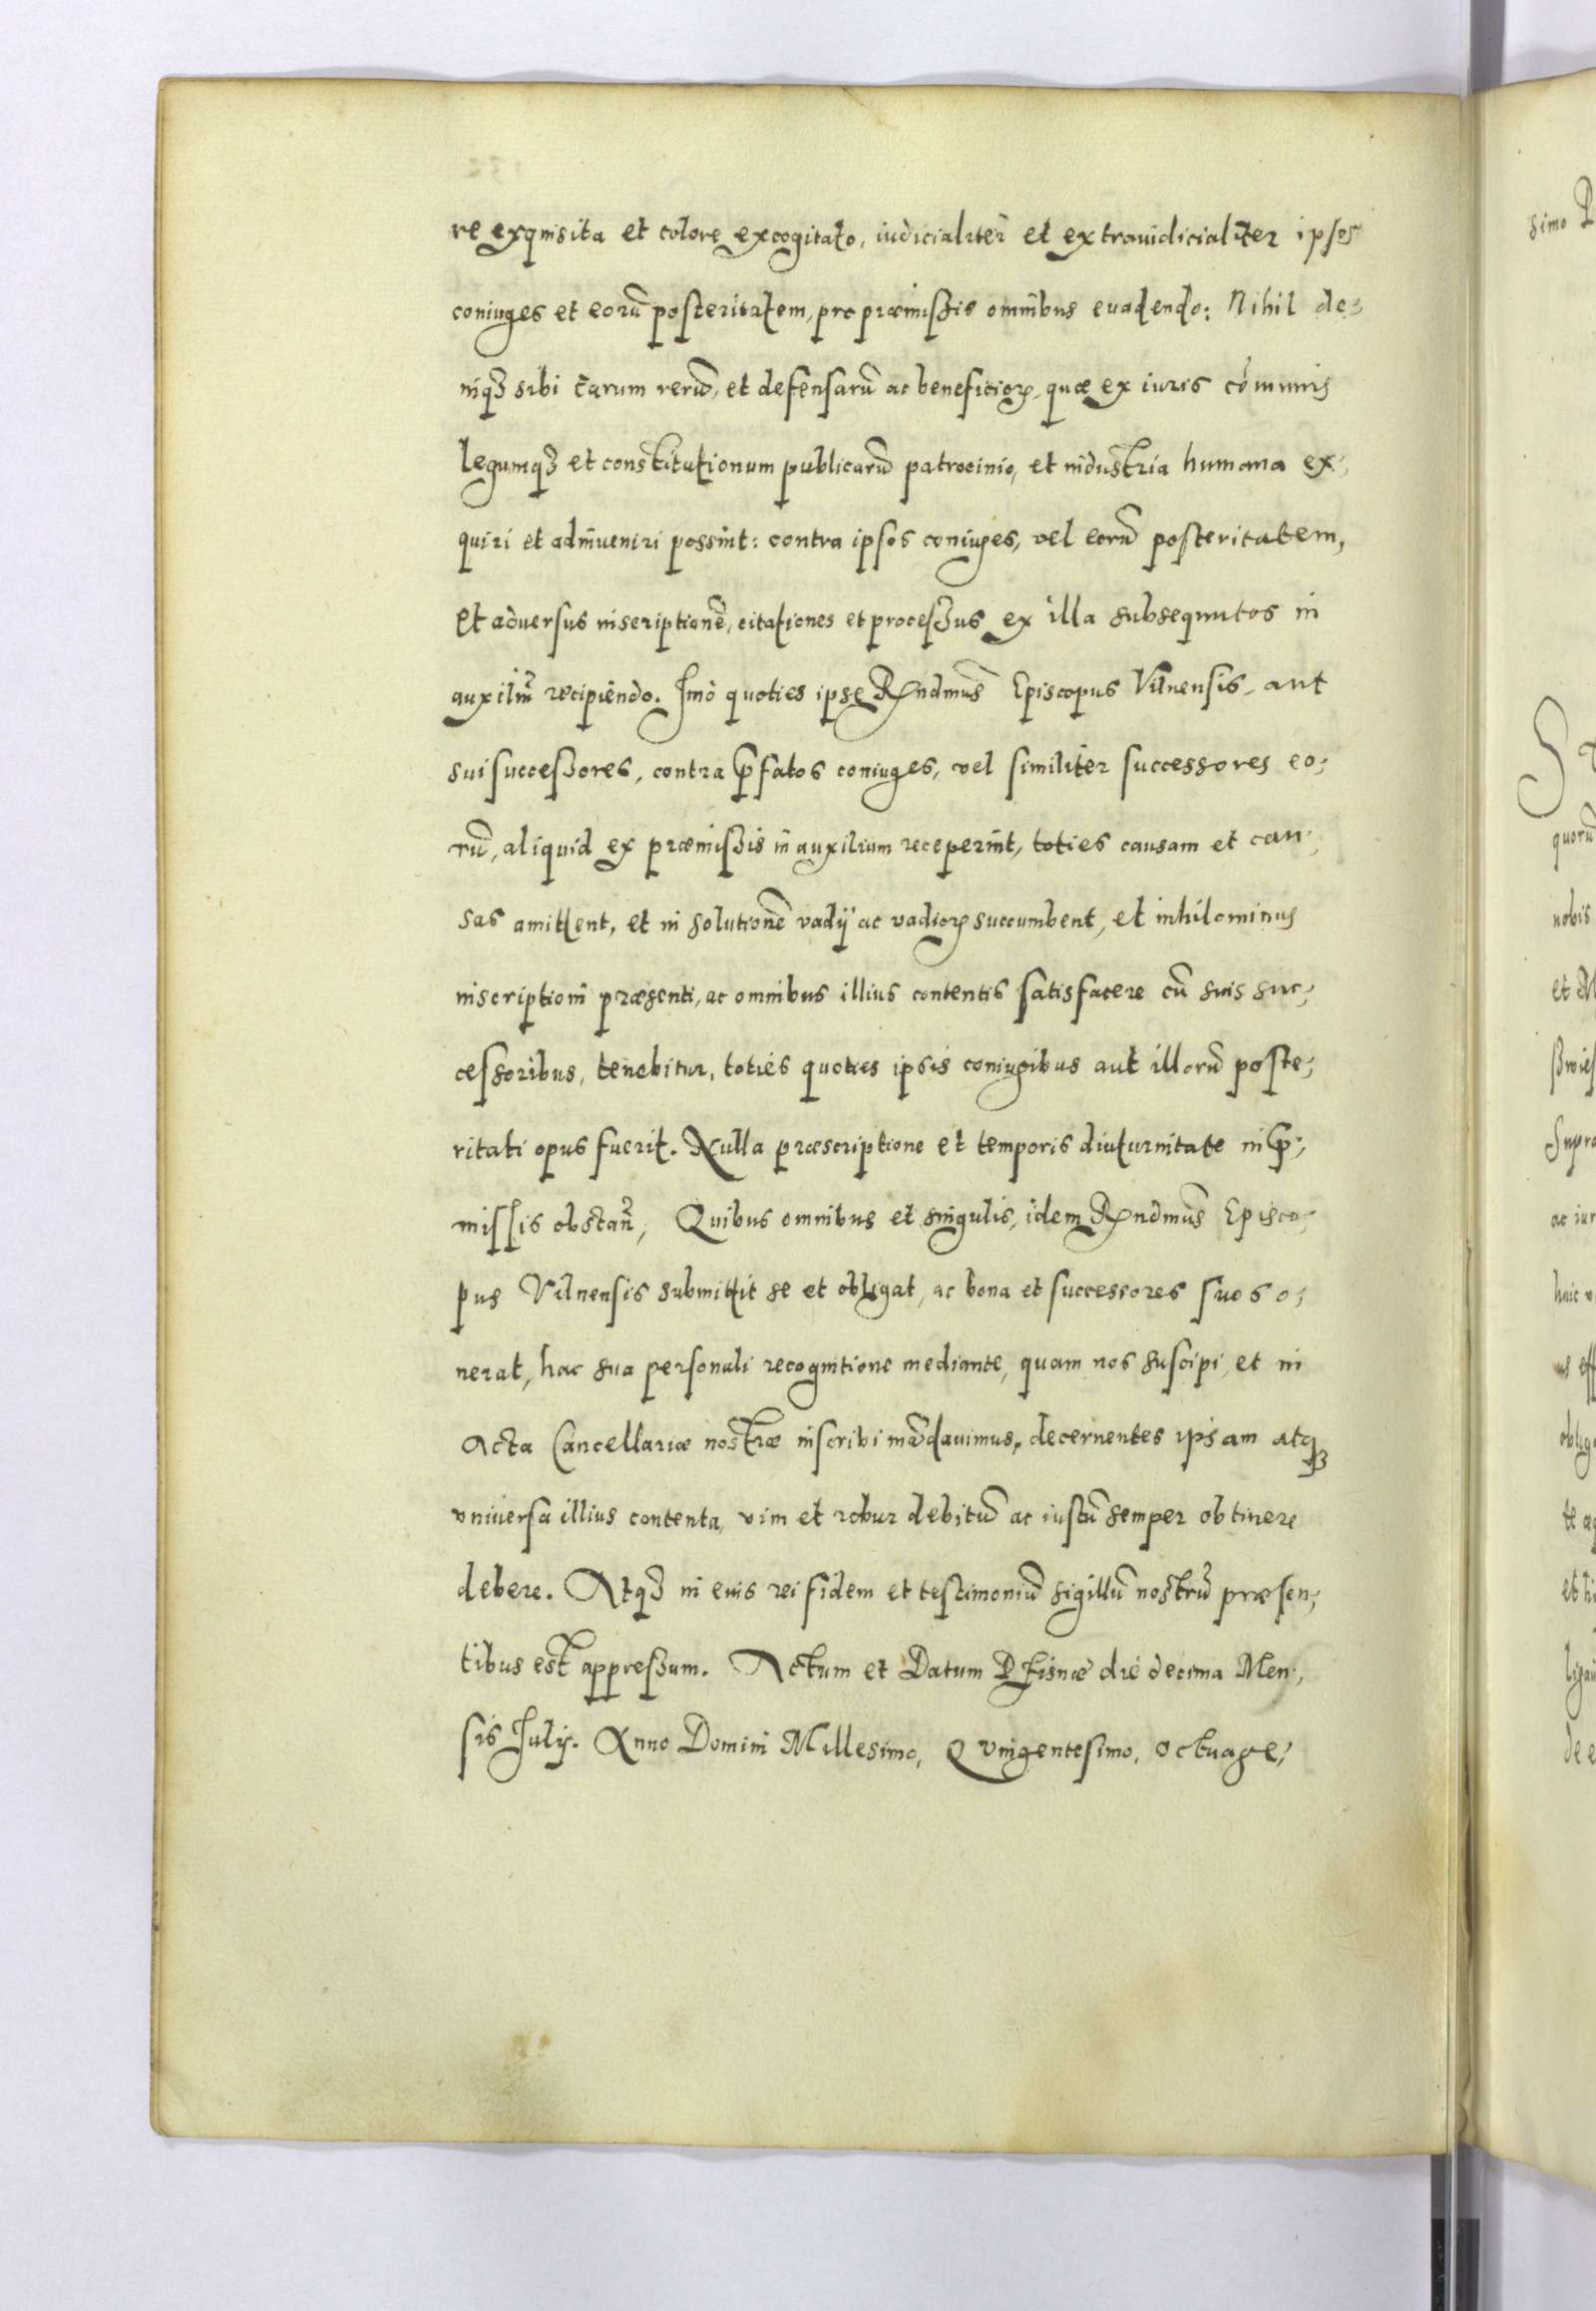 re exquisita et colore excogitato, iudicialiter et extraiudicialiter ipsos
coniuges et eorū posteritatem, pro præmissis omnibus euadendo: Nihil de-
niqȝ sibi earum rerū, et defensarū ac beneficioꝝ, quæ ex iuris cōmunis
legumqȝ et constitutionum publicarū patrocinio, et industria humana ex-
quiri et adinueniri possint: contra ipsos coniuges, vel eorū posteritatem,
et aduersus inscriptionē, citationes et processus ex illa subsequutos in
auxiliū recipiendo. Imò quoties ipse Rꝛndmus Episcopus Vilnensis, aut
sui successores, contra p̄fatos coniuges, vel similiter successores eo-
rū, aliquid ex præmissis in auxilium receperint, toties causam et cau-
sas amittent, et in solutionē vadij ac vadioꝝ succumbent, et nihilominus
inscriptioni præsenti, ac omnibus illius contentis satisfacere cū suis suc-
cessoribus, tenebitur, toties quoties ipsis coniugibus aut illorū poste-
ritati opus fuerit. Nulla præscriptione et temporis diuturnitate in p̄-
missis obstan̄, Quibus omnibus et singulis, idem Rꝛndmus Episco-
pus Vilnensis submittit se et obligat, ac bona et successores suos o-
nerat, hac sua personali recognitione mediante, quam nos suscipi, et in
Acta Cancellariæ nostræ inscribi mādauimus, decernentes ipsam atqȝ
vniuersa illius contenta, vim et robur debitū ac iustū semper obtinere
debere. Atqȝ in eius rei fidem et testimoniū sigillū nostrū præsen-
tibus est appressum. Actum et Datum Dzisnæ die decima Men-
sis Iulij. Anno Domini Millesimo, Quingentesimo, octuage-
simo
quorū
nobis
et
Supra